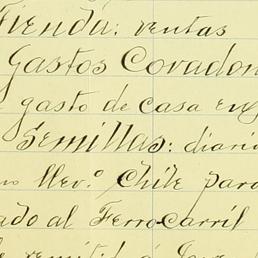 Tienda: ventas
Gastos Covadon
gasto de casa en
Semillas: diari
llev.º Chile para
ado al FerroCarril
remitió á